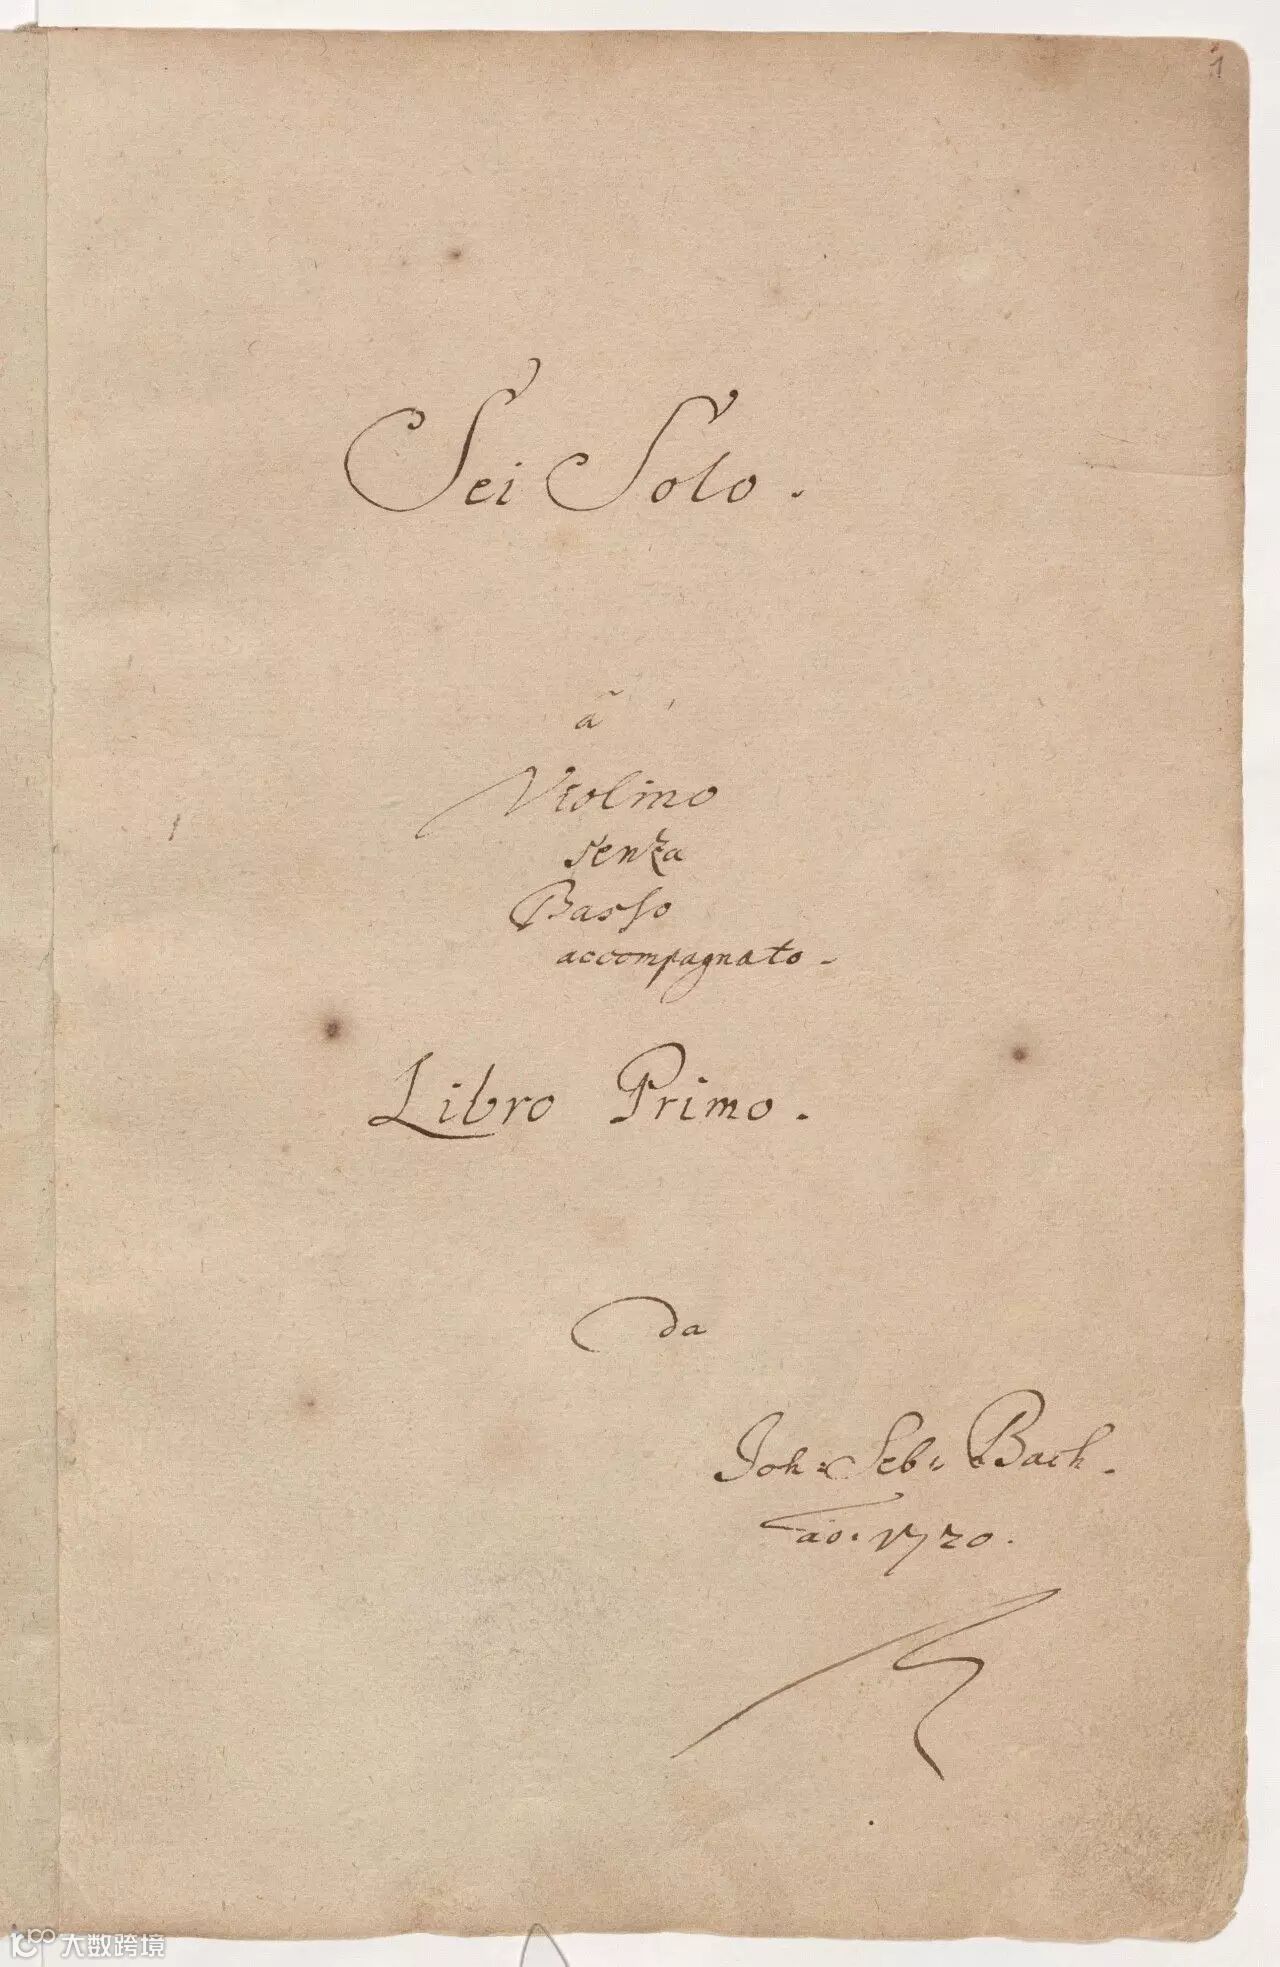 1
Sei Solo.
â
Violino
senza
Basso
accompagnato.
Libro Primo.
da
Joh: Seb: Bach.
ao. 1720.
大数跨境